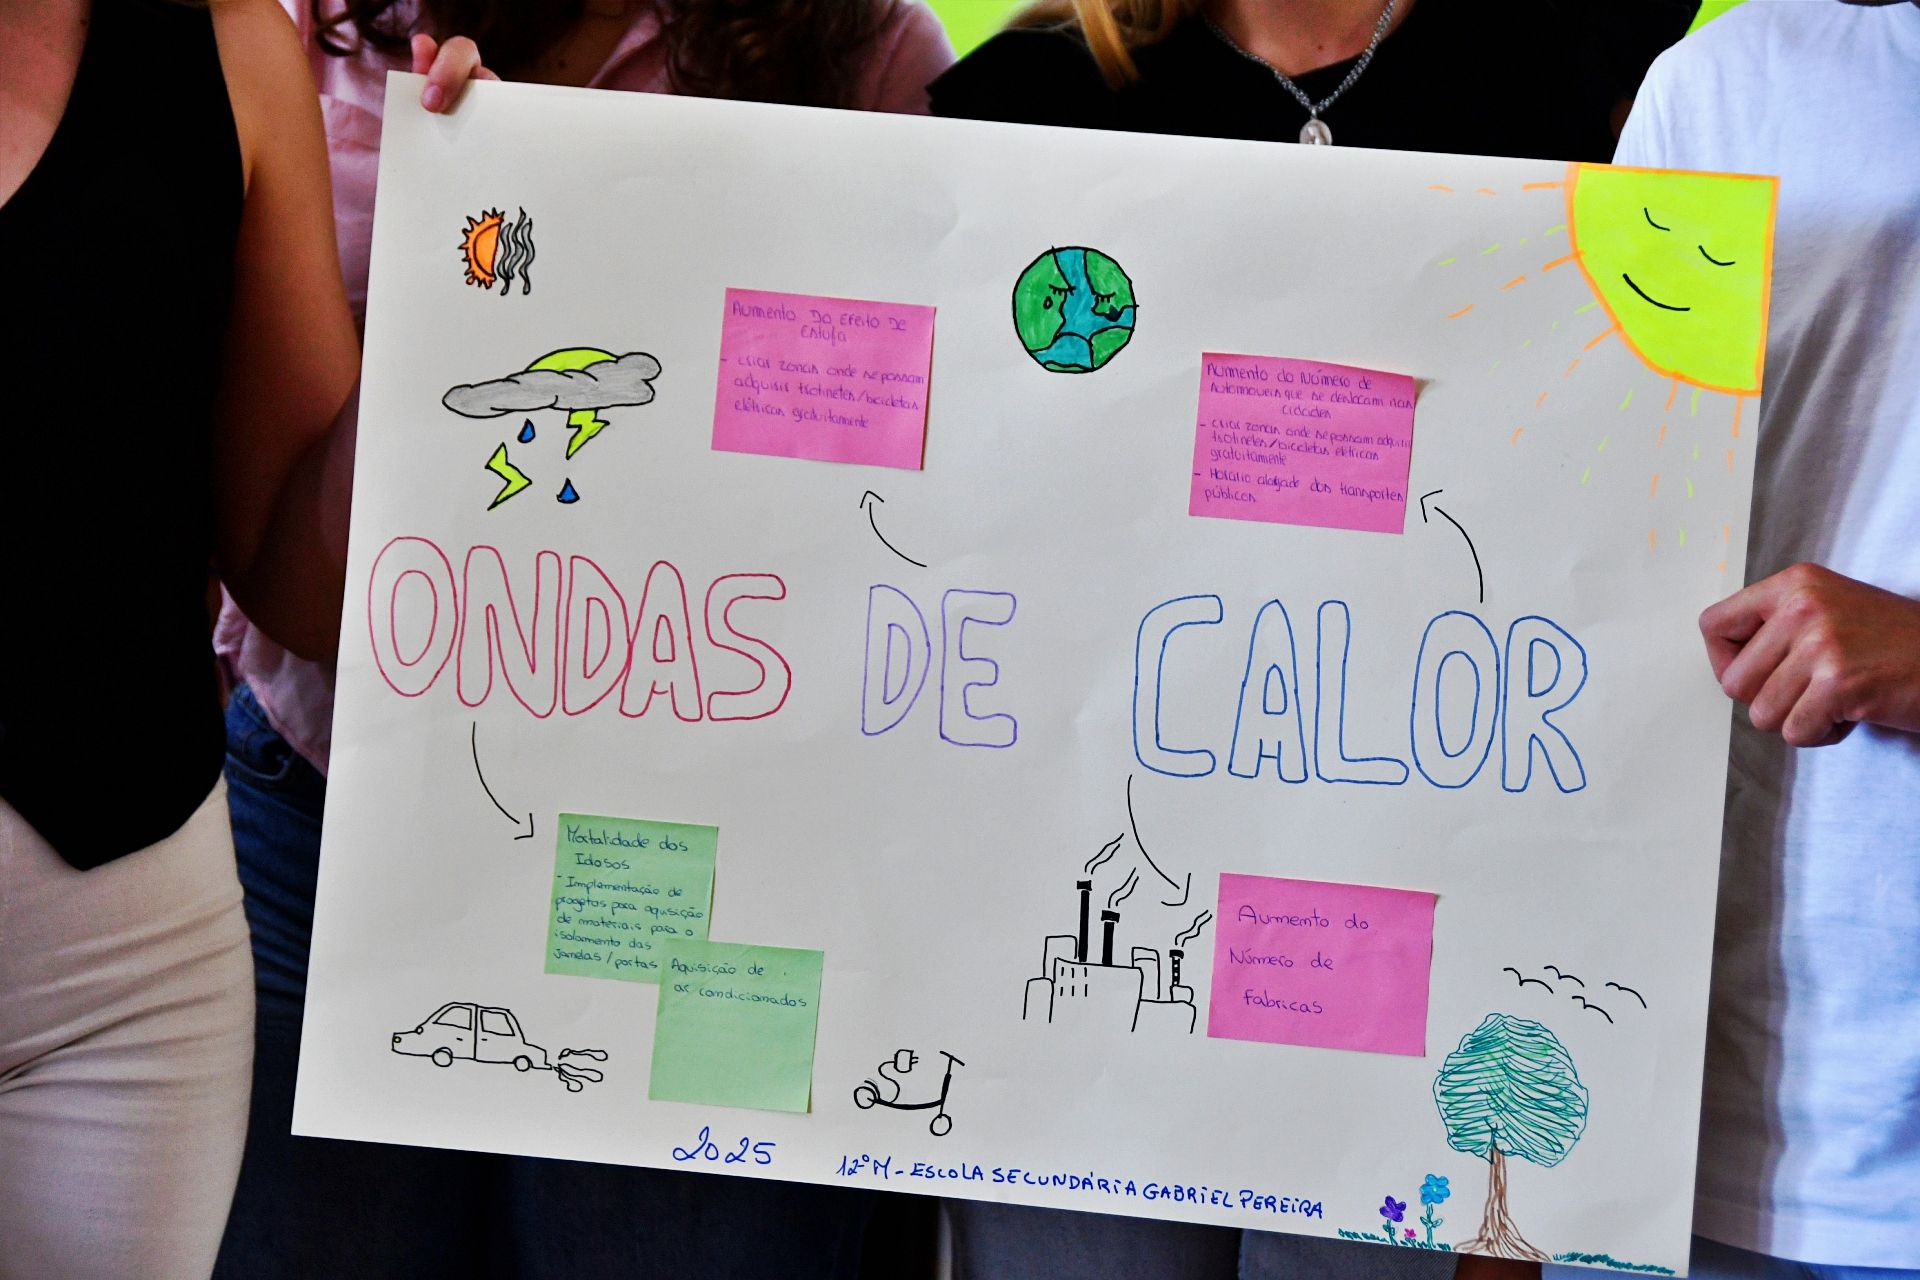 Aumento do Efeito de
Estufa
- criar zonas onde se possam
adquirir trotinetes/bicicletas
elétricas gratuitamente
Aumento do Número de
Automoveis que se deslocam nas
cidades
- criar zonas onde se possam adquirir
trotinetes/bicicletas elétricas
gratuitamente
- Horário alargado dos transportes
públicos
ONDAS DE CALOR
Mortalidade dos
Idosos
- Implementação de
projetos para aquisição
de materiais para o
isolamento das
janelas/portas
Aquisição de
ar condicionados
Aumento do
Número de
Fabricas
2025
12º M - ESCOLA SECUNDÁRIA GABRIEL PEREIRA